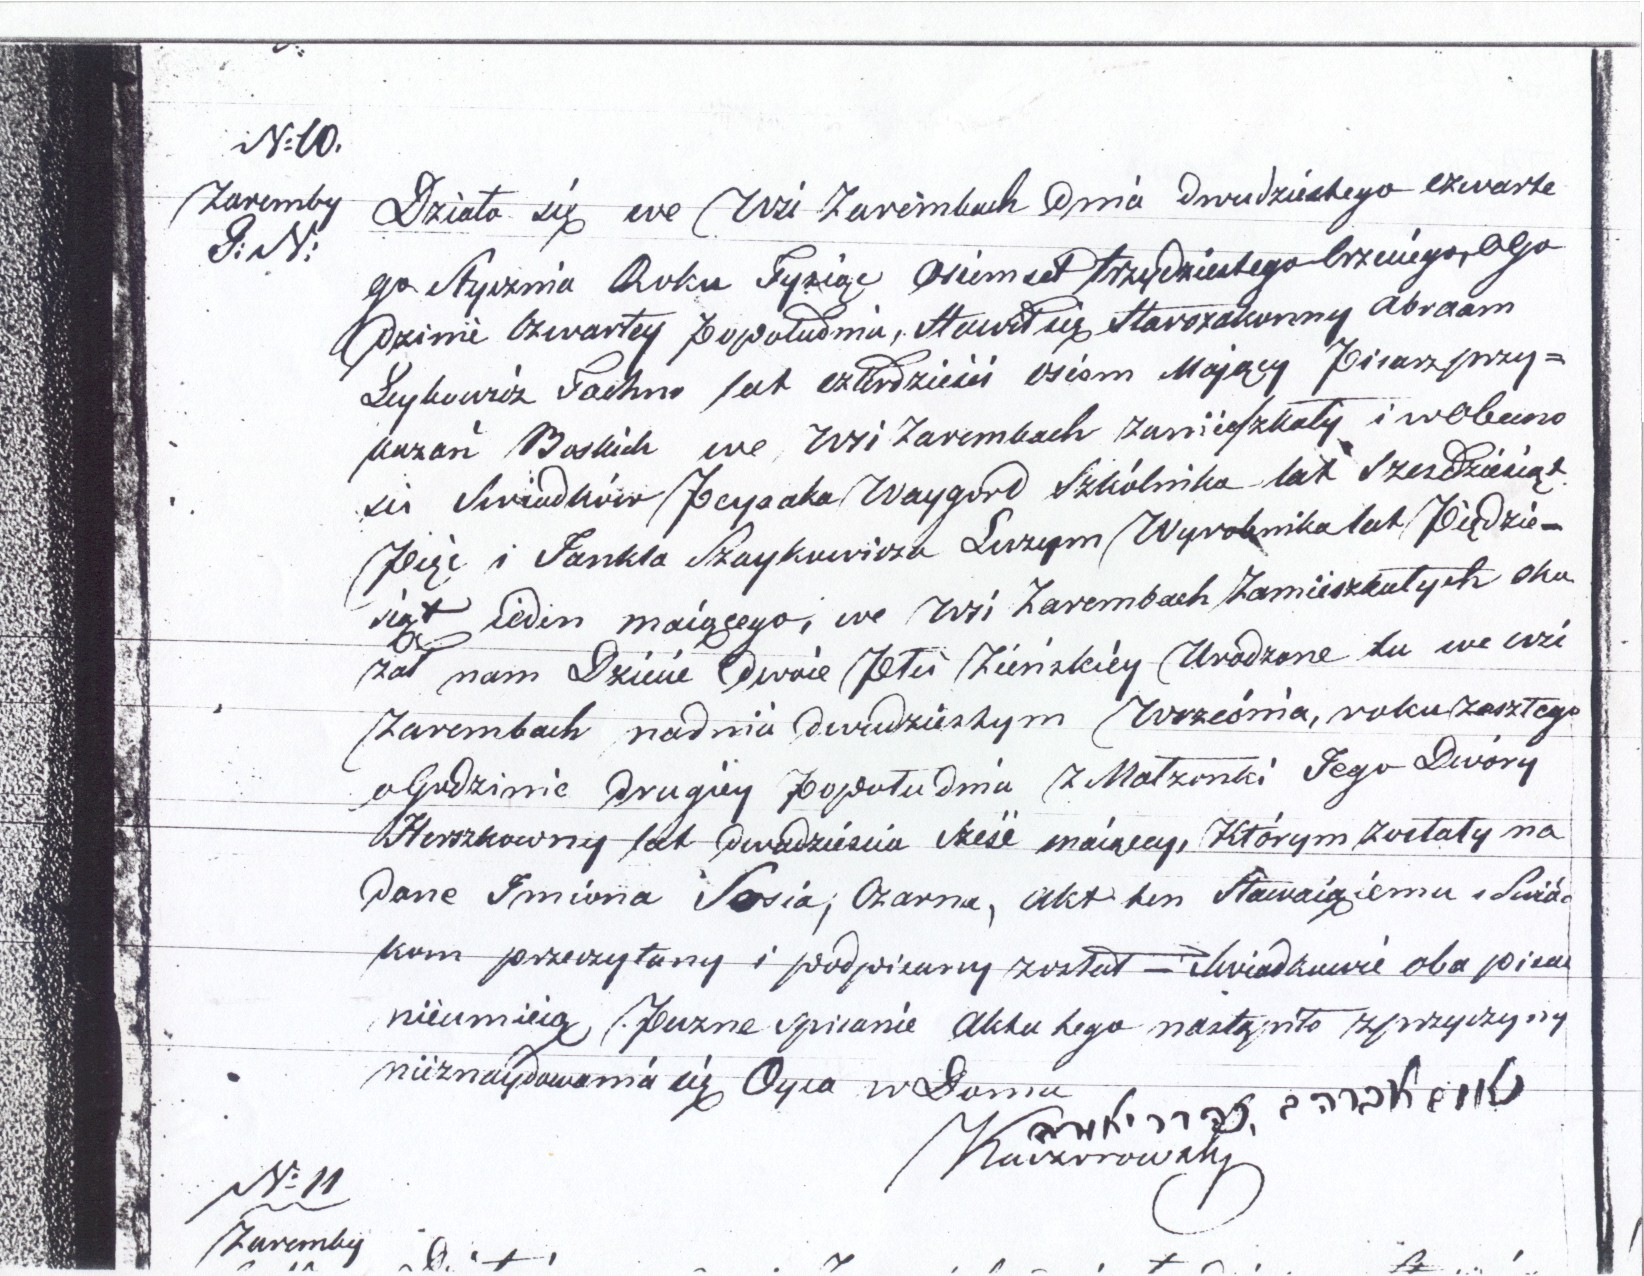 N: 10.
Zaremby
P: N:
Działo się we Wsi Zarembach dnia dwudziestego czwarte
go Stycznia Roku Tysiąc Osiemset trzydziestego trzeciego, o Go
dzinie Czwartey Popołudniu, Stawił się Starozakonny Abraam
Leybowicz lat czterdzieści osiem Mający Pisarz przy=
kazań Boskich we Wsi Zarembach zamieszkały i w Obecno
sci Swiadków Peysaka Waygord Szkólnika lat Szescdziesiąt
Pięć i Jankla Szaykowicza Wyrobnika lat Pięćdzie-
siąt ieden maiącego, we Wsi Zarembach Zamieszkałych oka
zał nam Dziecie dwoie Płci Żeńskiéy Urodzone tu we wsi
Zarembach nadniu dwudziestym Września, roku zeszłego
o Godzinie drugiéy Popołudniu z Małżonki Jego Dwóry
Herszkowny lat dwadzieścia sześć maiącey, Którym zostały na
dane Imiona Sosia, Czarna, Akt ten Stawaiąiemu i Swiad
kom przeczytany i podpisany został – Swiadkowie oba pisać
nieumieią, Puzne spisanie Aktu tego nastąpiło z przyczyny
nieznaydowania się Oyca w Domu
Kaczorowski
N: 11
Zaremby